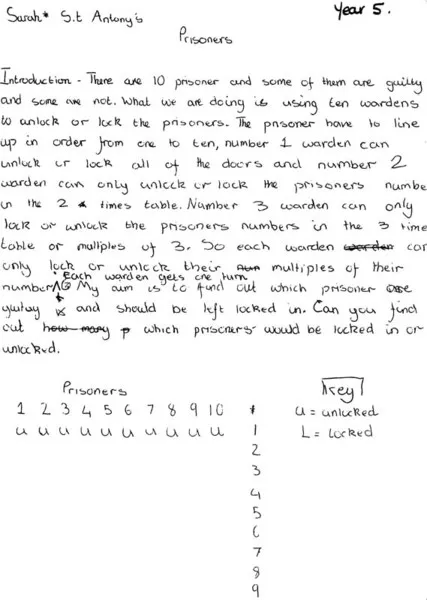 Sarah* S.t Antony's
Year 5.
Prisoners
Introduction - There are 10 prisoner and some of them are guilty
and some are not. What we are doing is using ten wardens
to unlock or lock the prisoners. The prisoner have to line
up in order from one to ten, number 1 warden can
unluck or lock all of the doors and number 2
warden can only unlock or lock the prisoners numbe
in the 2 times table. Number 3 warden can only
lock or unlock the prisoners numbers in the 3 time
table or muliples of 3. So each warden warden can
only lock or unlock their multiples of their
Each warden gets one turn
number. My aim is to find out which prisoner are
guilty and should be left locked in. Can you find
out how many p which prisoners would be locked in or
unlocked.
Prisoners
1 2 3 4 5 6 7 8 9 10
u u u u u u u u u u
1
2
3
4
5
6
7
8
9
Key
u = unlocked
L = locked